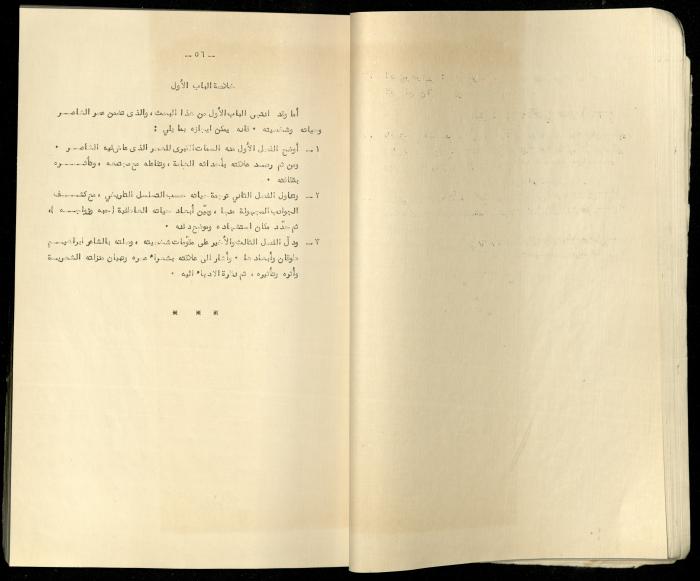 ـ ٥٦ ـ
خلاصة الباب الأول
أما وقد انتهى الباب الأول من هذا البحث ، والذى تضمن عصر الشاعر
وحياته وشخصيته ٠ فانه يمكن ايجازه بما يلي :
١ ـ أوضح الفصل الأول منه السمات الكبرى للعصر الذى عاش فيه الشاعر ٠
ومن ثم رصد علاقته بأحداثه الهامة ، وتفاعله مع مجتمعه ، وتأثره
بثقافته ٠
٢ ـ وتناول الفصل الثاني ترجمة حياته حسب التسلسل التاريخي ، مع كشف
الجوانب المجهولة منها ، وبيّن أبعاد حياته العاطفية ( حبه وزواجه ) ،
ثم حدّد مكان استشهاده وموضع دفنه ٠
٣ ـ ودلّ الفصل الثالث والأخير على مقوّمات شخصيته ، وصلته بالشاعر ابراهيم
طوقان وأبعادها ٠ وأشار الى علاقته بشعراء عصره وتبيان منزلته الشعرية
وأثره وتأثيره ، ثم نظرة الادباء اليه ٠
* * *